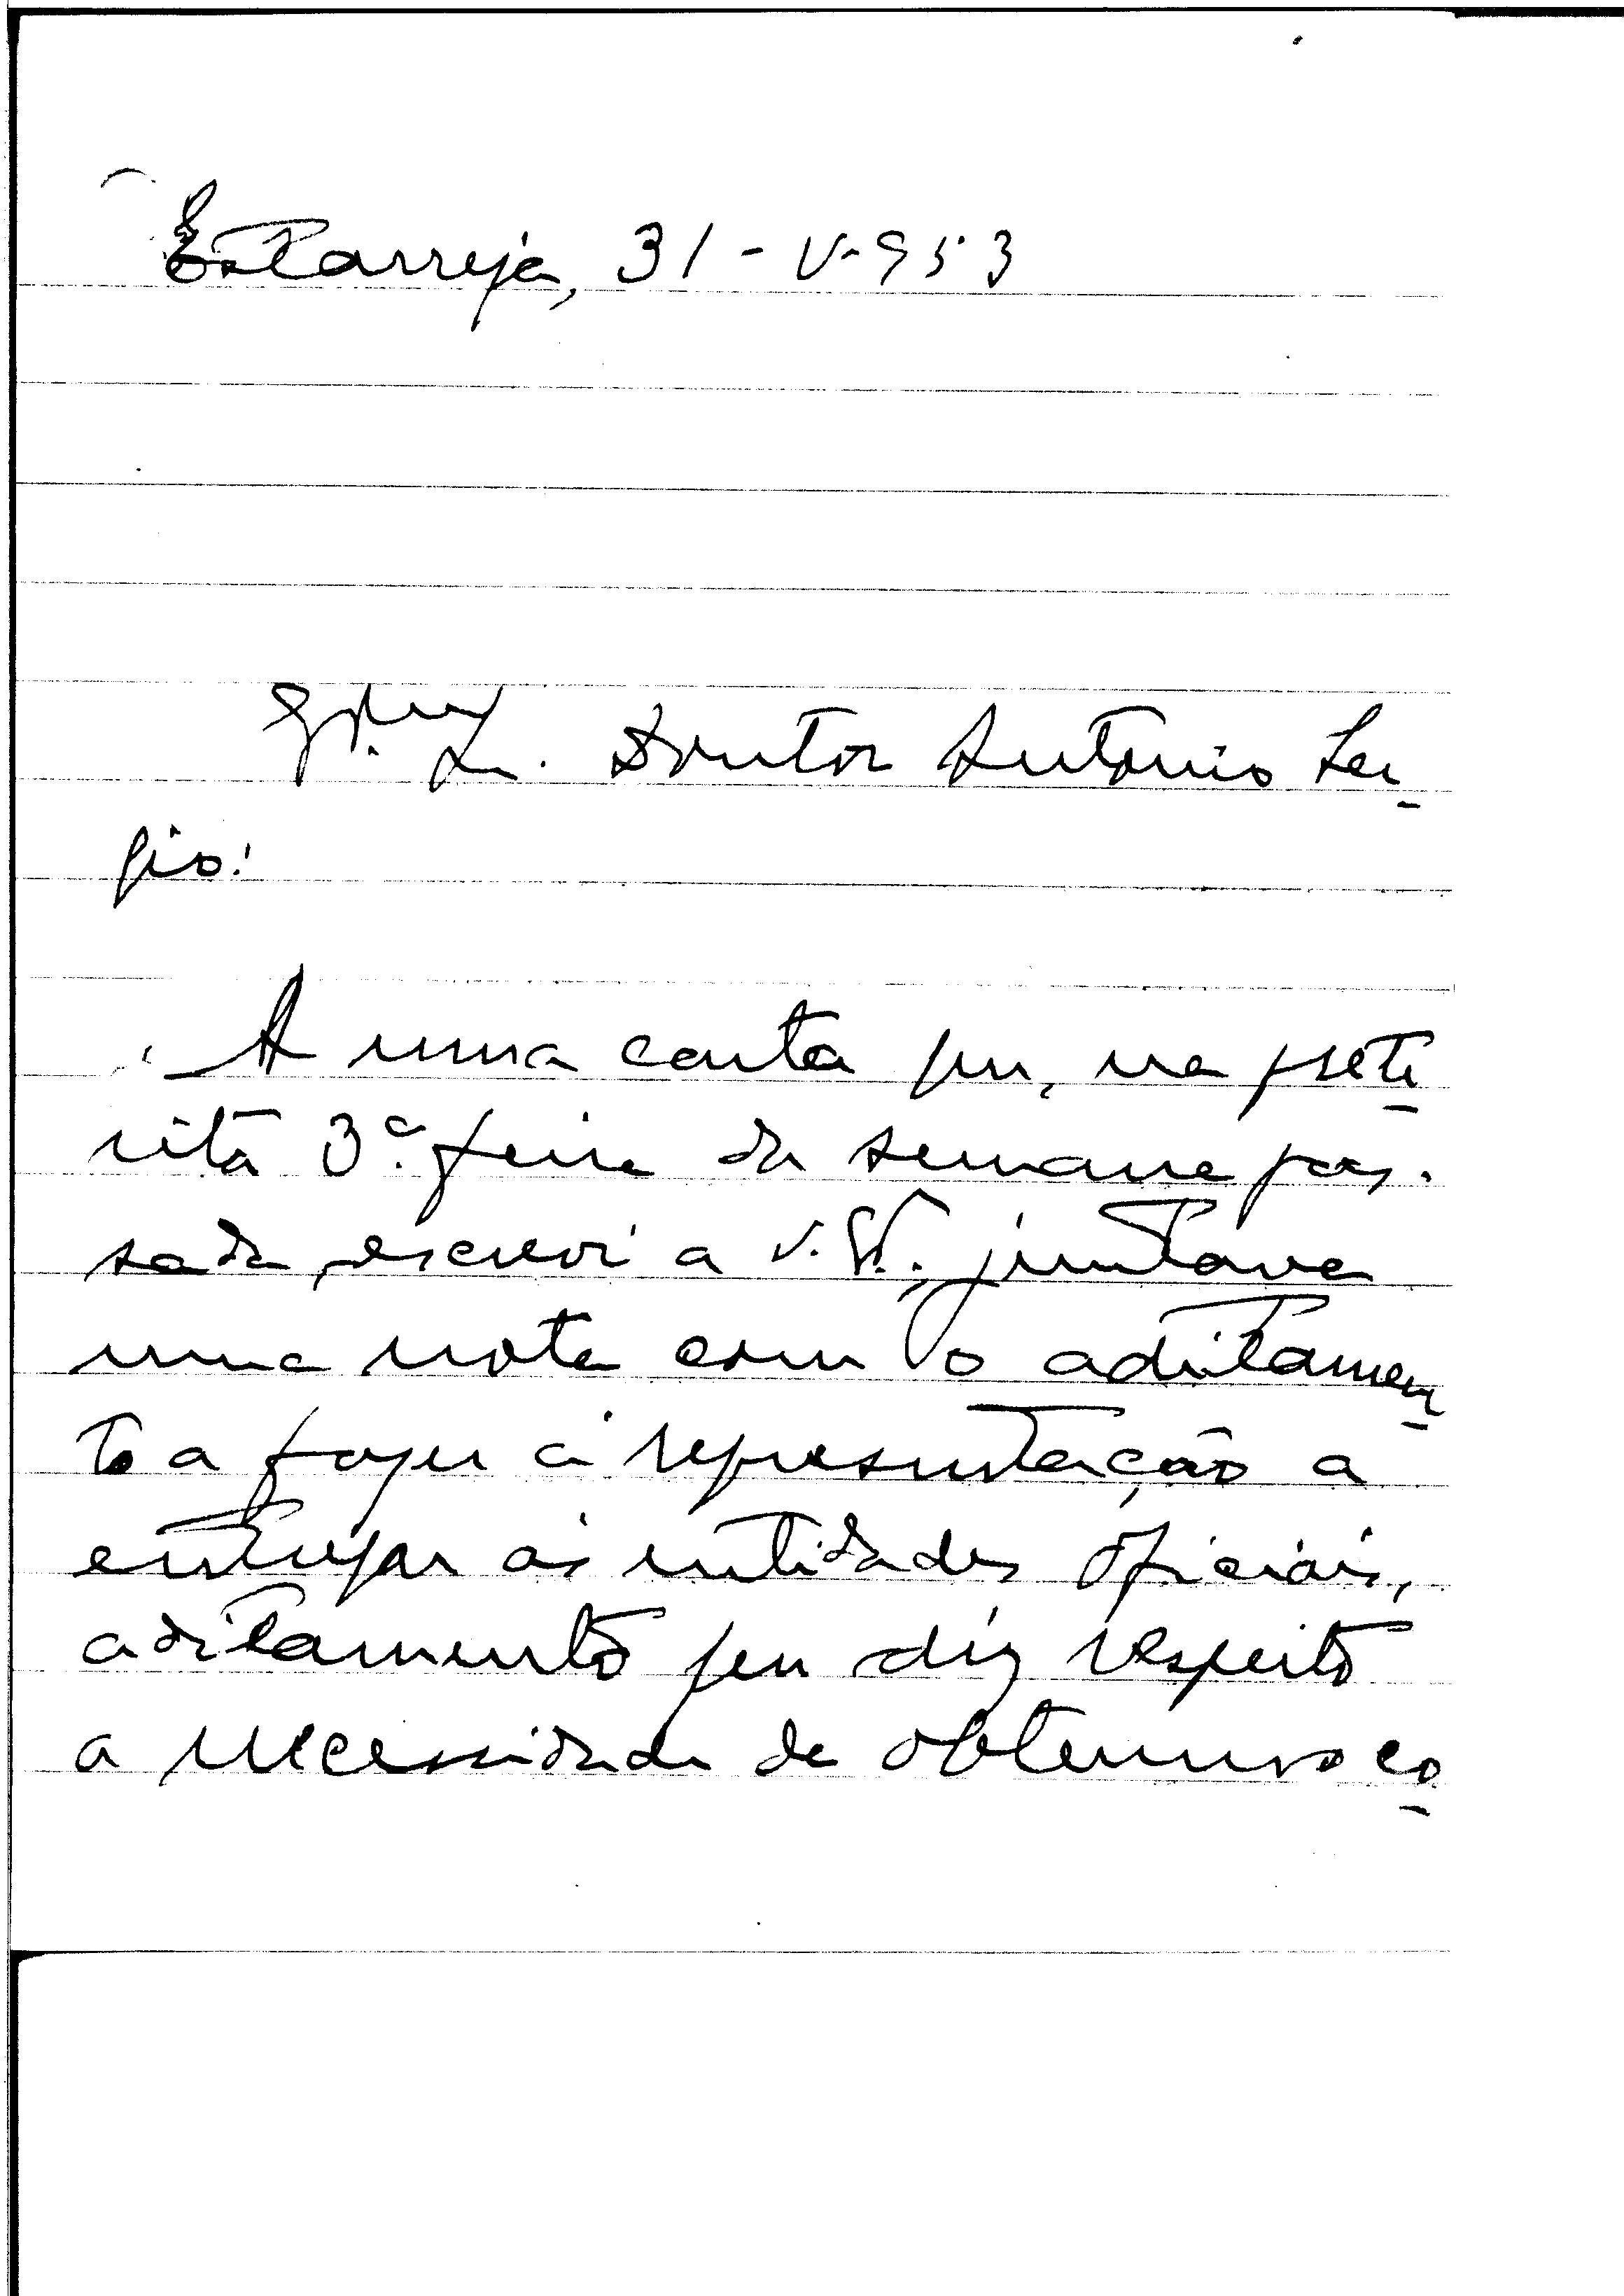 Estarreja, 31-V-953
Exmo Sr. Doutor António Sér
gio:
A uma carta que, na preté
rita 3ª feira da semana pas-
sada, escrevi a V. Ex., juntava
uma nota com o aditamen
to a fazer à representação a
entregar às entidades oficiais,
aditamento que diz respeito
a necessidade de obtermos co